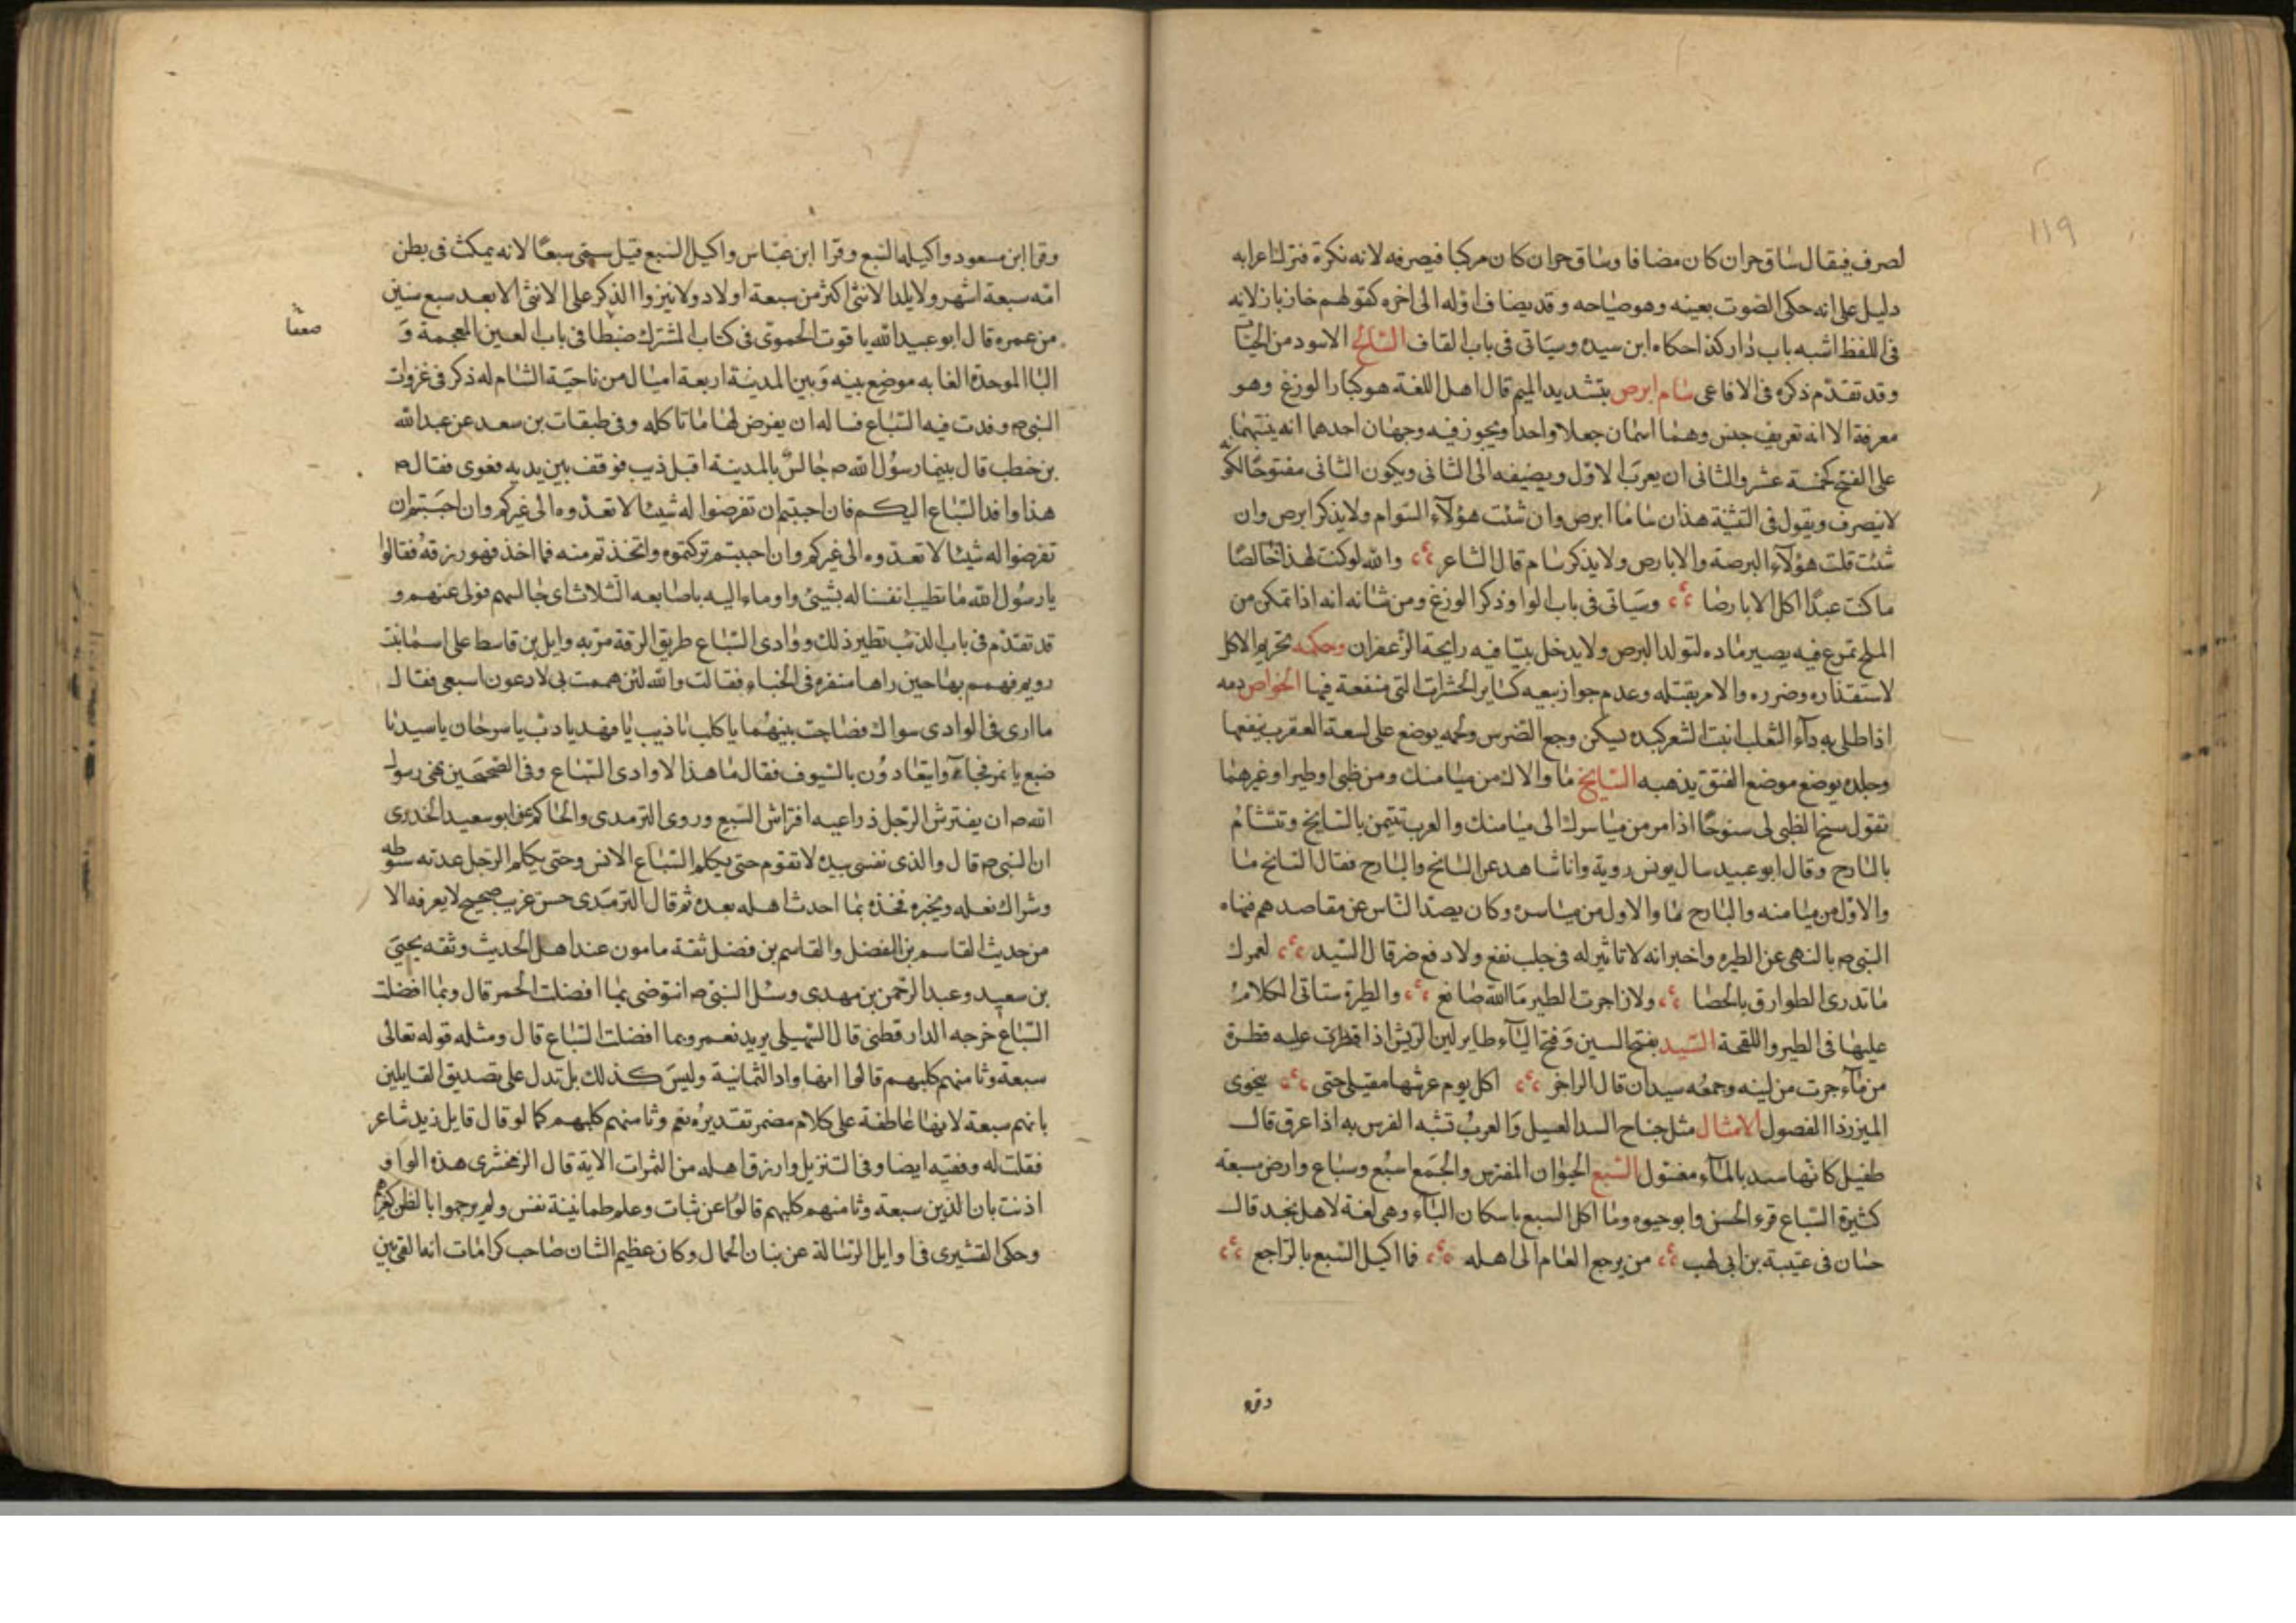 ١١٩
لصرف فيقال ساق حران كان مضافا وساق حران كان مركبا فيصرفه لانه نكرة فترك اعرابه
دليل على انه حكى الصوت بعينه وهو صياحه وقد يضاف اوله الى اخره كقولهم خازباز لانه
فى اللفظ اشبه باب دار كذا حكاه ابن سيده وسياتى فى باب القاف السالخ الاسود من الحيات
وقد تقدم ذكره فى الافاعى سام ابرص بتشديد الميم قال اهل اللغة هو كبار الوزغ وهو
معرفة الا انه تعريف جنس وهما اسمان جعلا واحدا ويجوز فيه وجهان احدهما ان يبنيهما
على الفتح كخمسة عشر والثانى ان يعرب الاول ويضيفه الى الثانى ويكون الثانى مفتوحا لكونه
لا ينصرف ويقول فى التثنية هذان ساما ابرص وان شئت هؤلآء السوام ولا يذكر ابرص وان
شئت قلت هؤلآء البرصة والابارص ولا يذكر سام قال الشاعر والله لو كنت لهذا خالصا
ما كنت عبدا اكل الابارصا وسياتى فى باب الواو ذكر الوزغ ومن شانه انه اذا تمكن من
الملح تمرغ فيه يصير ماده لتولد البرص ولا يدخل بيتا فيه رايحة الزعفران وحكمه تحريم الاكل
لاستقذاره وضرره والامر بقتله وعدم جواز بيعه كساير الحشرات التى منفعة فيها الخواص دمه
اذا طلى به دآء الثعلب انبت الشعر كبده يسكن وجع الضرس ولحمه يوضع على لسعة العقرب ينفعها
وجلده يوضع موضع الفتق يذهبه السايح ما والاك من ميامنك ومن ظبى او طير او غيرهما
تقول سنح الظبى لى سنوحا اذا مر من مياسرك الى ميامنك والعرب تتيمن بالسانح وتتشام
بالبارح وقال ابو عبيد سال يونس روية وانا شاهد عن السانح والبارح فقال السانح ما
والاول من ميامنه والبارح ما والاول من مياسره وكان يصد الناس عن مقاصدهم فنهاه
النبى ص بالنهى عن الطيره واخبر انه لا تاثير له فى جلب نفع ولا دفع ضر قال السيد لعمرك
ما تدرى الطوارق بالحصا ولا زاجرت الطير ما الله صانع والطيرة ستاتى الكلام
عليها فى الطير واللقحة السبد بفتح السين وفتح البآء طاير لين الريش اذا قطرت عليه قطرة
من مآء جرت من لينه وجمعه سبدان قال الراجز اكل يوم عرشها مقيلى حتى يخوى
الميزر ذا الفصول الامثال مثل جناح السبد الغسيل والعرب تشبه الفرس به اذا عرق قال
طفيل كانها سبد بالمآء مغسول السبع الحيوان المفترس والجمع اسبع وسباع وارض مسبعة
كثيرة السباع قرء الحسن وابو حيوه وما اكل السبع باسكان البآء وهى لغة لاهل نجد قال
حسان فى عتيبة بن ابى لهب من يرجع العام الى اهله فما اكيل السبع بالراجع
وقرا
وقرا ابن مسعود واكيلة السبع وقرا ابن عباس واكيل السبع قيل سمى سبعا لانه يمكث فى بطن
امه سبعة اشهر ولا يلد الانثى اكثر من سبعة اولاد ولا ينزوا الذكر على الانثى الا بعد سبع سنين
من عمره قال ابو عبيد الله ياقوت الحموى فى كتاب المشترك ضبطا فى باب الغين المعجمة و
البا الموحدة الغابه موضع بينه وبين المدينة اربعة اميال من ناحية الشام له ذكر فى غزوات
النبى ص وفدت فيه السباع فساله ان يفرض لها ما تاكله وفى طبقات بن سعد عن عبد الله
بن خطب قال بينما رسول الله ص جالس بالمدينة اقبل ذيب فوقف بين يديه فعوى فقال ص
هذا وافد السباع اليكم فان احببتم ان تفرضوا له شيئا لا تعدوه الى غيركم وان احببتم ان
تفرضوا له شيئا لا تعدوه الى غيركم وان احببتم تركتموه واتخذتم منه فما اخذ فهو رزقه فقالوا
يا رسول الله ما تطيب انفسنا له بشيئ واوماء اليه باصابعه الثلاث اى خالسهم فولى عنهم و
قد تقدم فى باب الذئب نظير ذلك ووادى السباع طريق الرقة مر به وايل بن قاسط على اسما بنت
رويم فهم بها حين راها منفره فى الخباء فقالت والله لئن هممت بى لادعون اسبعى فقال
ما ارى فى الوادى سواك فصاحت ببنيهما يا كلب يا ذيب يا فهد يا دب يا سرحان يا سيد يا
ضبع يا نمر فجاءوا يتعادون بالسيوف فقال ما هذا الا وادى السباع وفى الصحيحين نهى رسول
الله ص ان يفترش الرجل ذراعيه افتراش السبع وروى الترمدى والحاكم عن ابو سعيد الخدرى
ان النبى ص قال والذى نفسى بيده لا تقوم حتى يكلم السباع الانس وحتى يكلم الرجل عدته سوطه
وشراك نعله ويخبره فخذه بما احدث اهله بعده ثم قال الترمدى حسن غريب صحيح لا يعرفه الا
من حديث القاسم بن الفضل والقاسم بن فضل ثقة مامون عند اهل الحديث وثقه يحيى
بن سعيد وعبد الرحمن بن مهدى وسئل النبى ص انتوضى بما افضلت الحمر قال وبما افضلت
السباع خرجه الدارقطنى قال السهيلى يريد نعم وبما افضلت السباع قال ومثله قوله تعالى
سبعة وثامنهم كلبهم قالوا انها واو الثمانية وليس كذلك بل تدل على تصديق القايلين
بانهم سبعة لانها عاطفة على كلام مضمر تقديره نعم وثامنهم كلبهم كما لو قال قايل زيد شاعر
فقلت له وفقيه ايضا وفى التنزيل وارزق اهله من الثمرات الاية قال الزمخشرى هذه الواو
اذنت بان الذين سبعة وثامنهم كلبهم قالوا عن ثبات وعلم طمانينة نفس ولم يرجموا بالظن كغيرهم
وحكى القشيرى فى اوايل الرسالة عن بنان الحمال وكان عظيم الشان صاحب كرامات انه القى بين